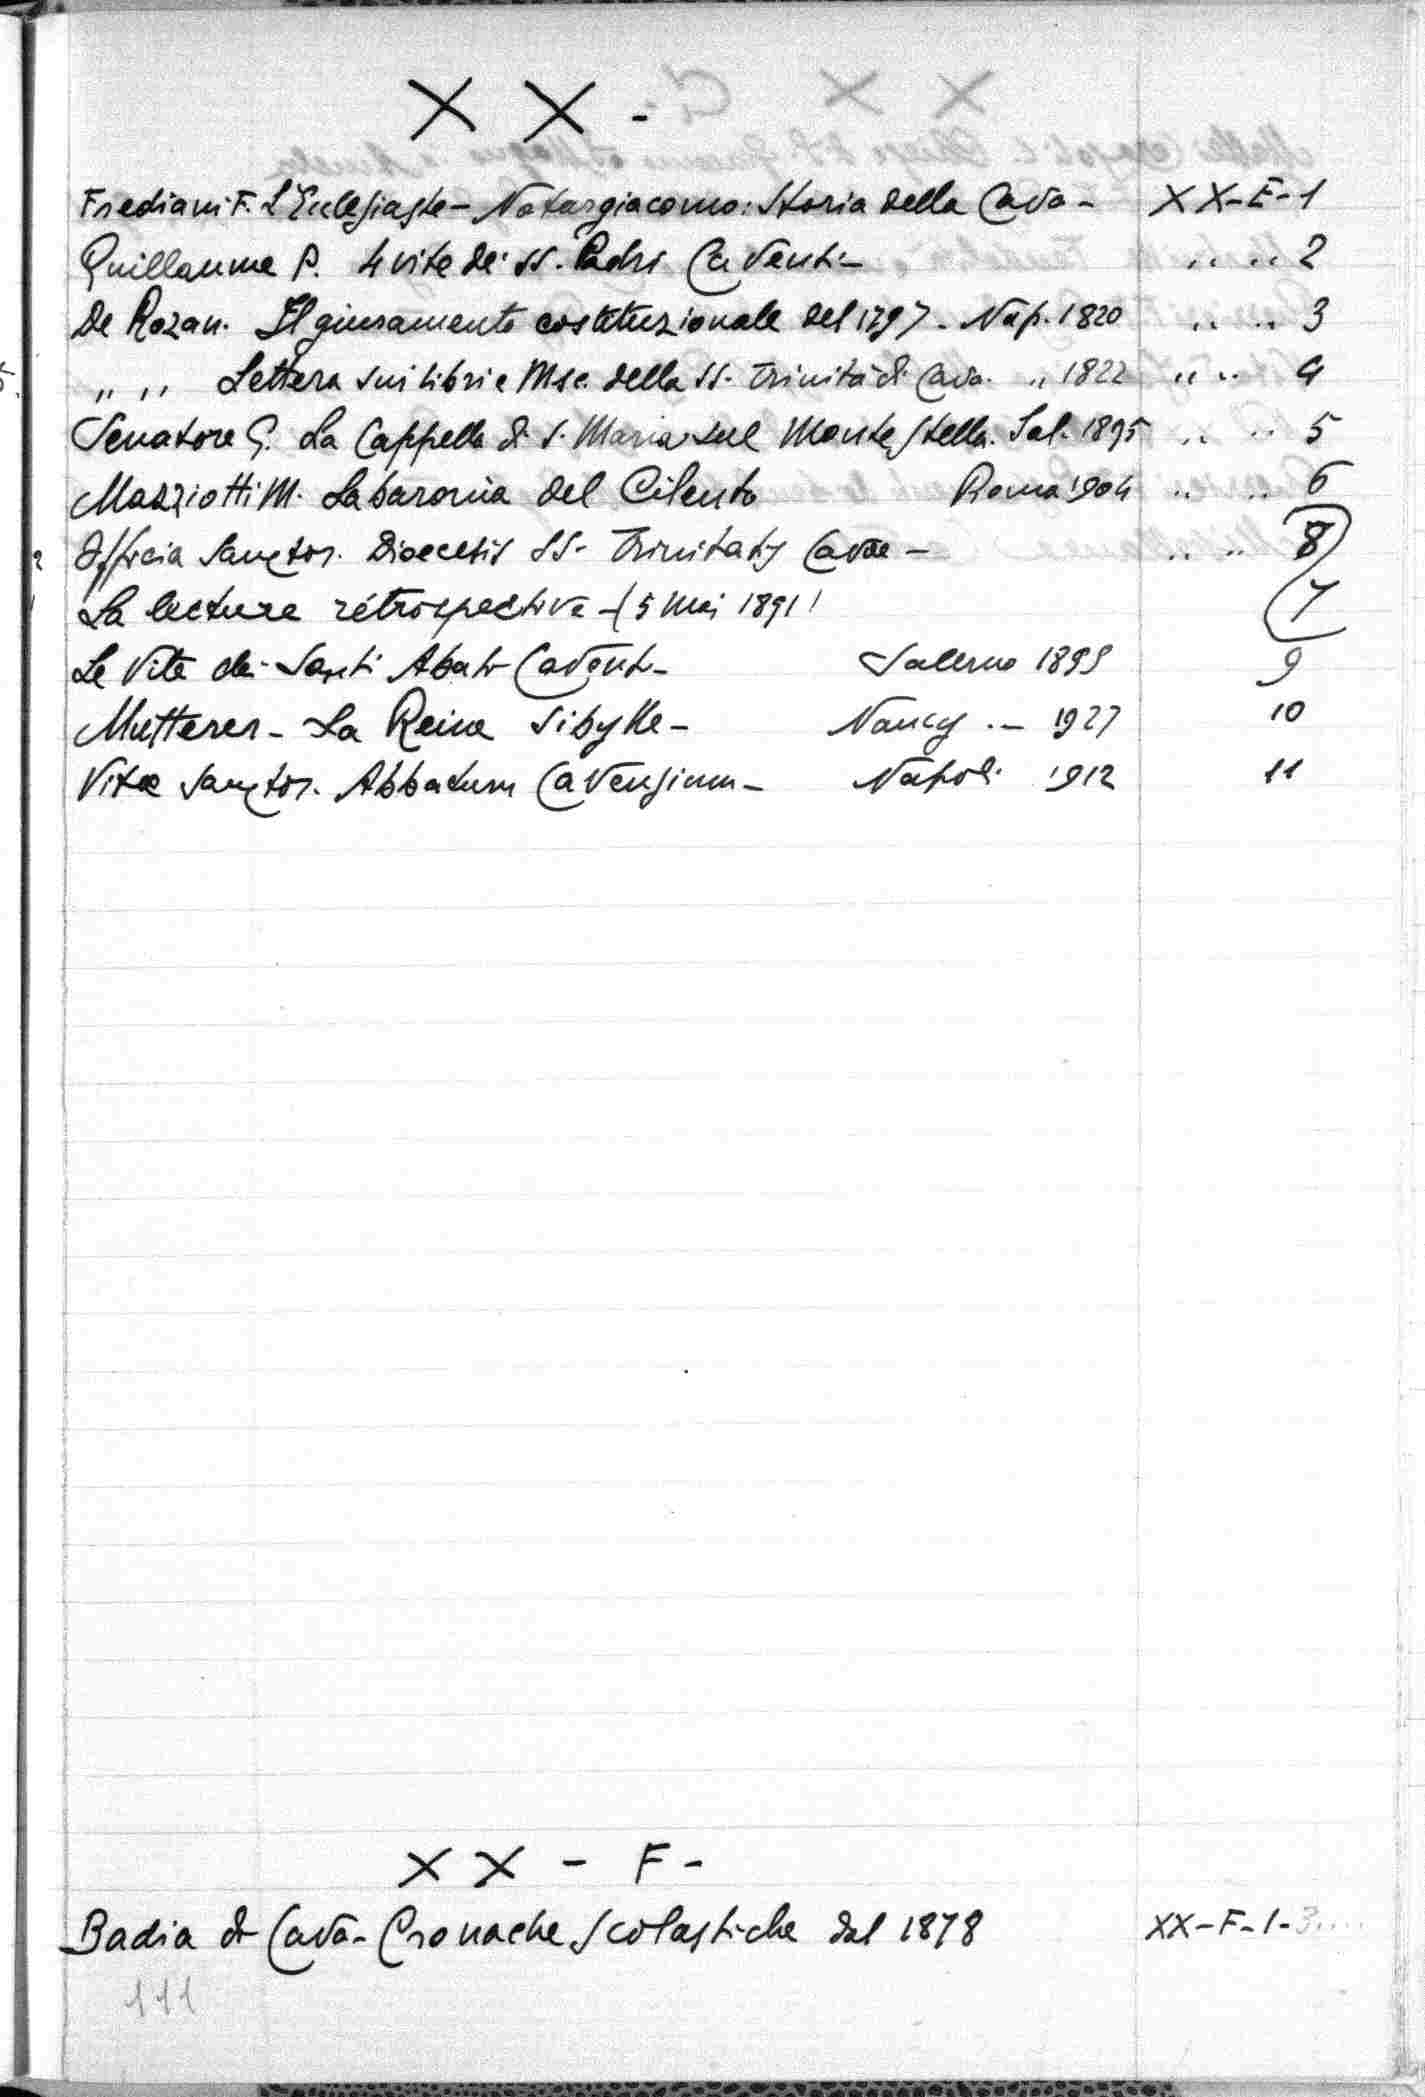 X X -
Frediani F. L'Ecclesiaste - Notargiacomo: Storia della Cava - XX-E-1
Guillaume P. 4 vite dei SS. Padri Cavensi - " " 2
De Rozan. Il giuramento costituzionale del 1797. Nap. 1820 " " 3
" " Lettera sui libri e Msc. della SS. Trinità di Cava. " 1822 " " 4
Senatore G. La Cappella di S. Maria sul Monte Stella. Sal. 1895 " " 5
Mazziotti M. La baronia del Cilento Roma 1904 " " 6
Officia Sanctor. Dioecesis SS. Trinitatis Cavae - " " 8
La lecture rétrospective - (5 Mai 1891! 7
Le Vite dei Santi Abati Cavensi - Salerno 1895 9
Mutterer - La Reine Sibylle - Nancy - 1927 10
Vitae Sanctor. Abbatum Cavensium - Napoli 1912 11
X X - F -
Badia di Cava - Cronache scolastiche dal 1878 XX-F-1-3....
111